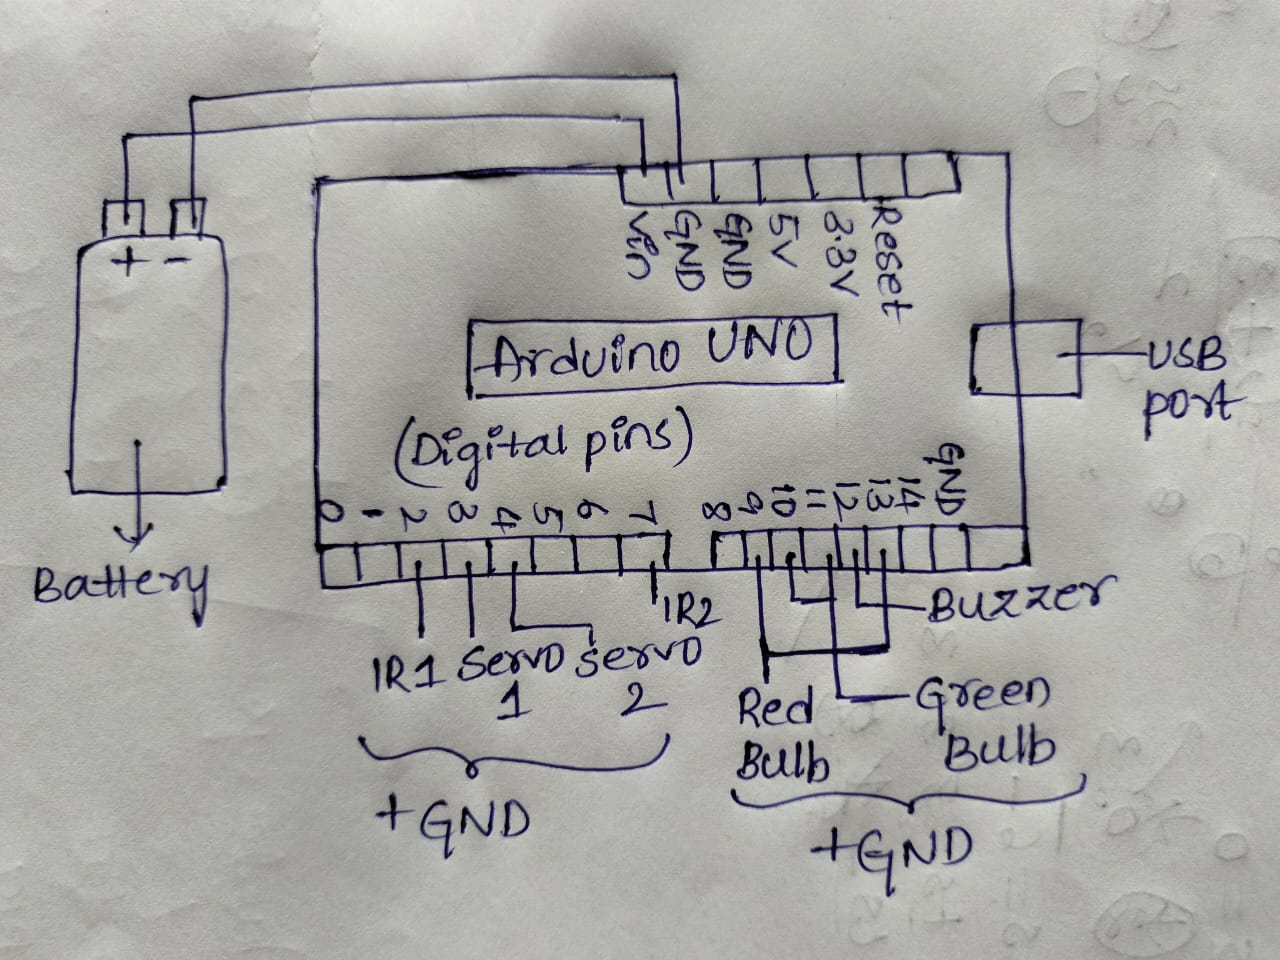 + -
Vin
GND
GND
5V
3.3V
Reset
Arduino UNO
USB
port
(Digital pins)
0 1 2 3 4 5 6 7 8 9 10 11 12 13 14 GND
Battery
IR1
Servo
1
Servo
2
IR2
Buzzer
Red
Bulb
Green
Bulb
+GND
+GND